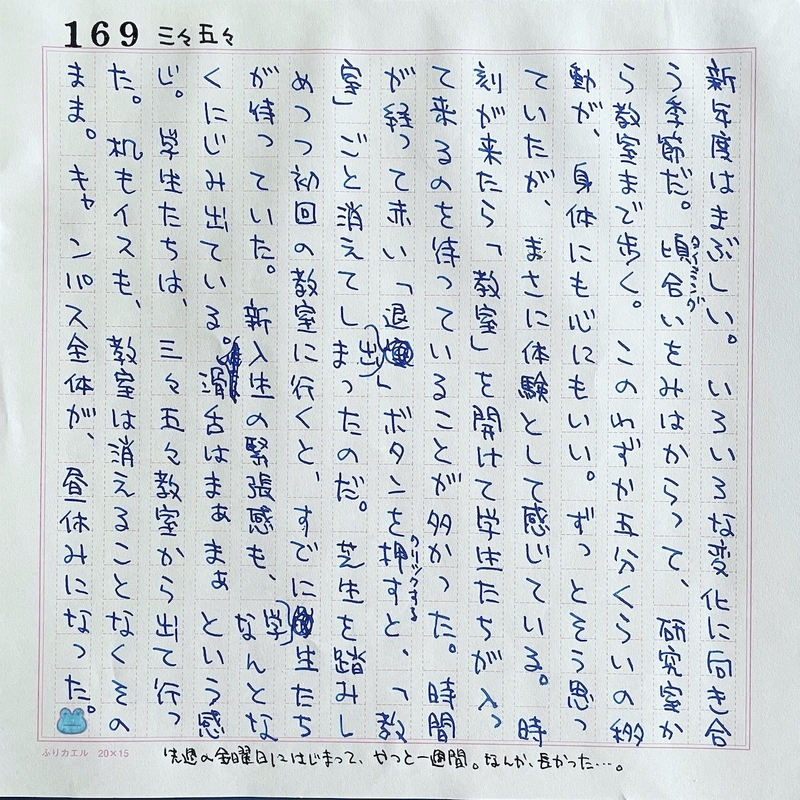 169 三々五々
新年度はまぶしい。いろいろな変化に向き合
う季節だ。頃合いをみはからって、研究室か
タイミング
ら教室まで歩く。このわずか五分くらいの移
動が、身体にも心にもいい。ずっとそう思っ
ていたが、まさに体験として感じている。時
刻が来たら「教室」を開けて学生たちが入っ
て来るのを待っていることが多かった。時間
が経って赤い「退出」ボタンを押すと、「教
クリックする
室」ごと消えてしまったのだ。芝生を踏みし
めつつ初回の教室に行くと、すでに学生たち
が待っていた。新入生の緊張感も、なんとな
くにじみ出ている。滑舌はまぁまぁという感
じ。学生たちは、三々五々教室から出て行っ
た。机もイスも、教室は消えることなくその
まま。キャンパス全体が、昼休みになった。
ふりカエル 20×15
先週の金曜日にはじまって、やっと一週間。なんか、長かった…。